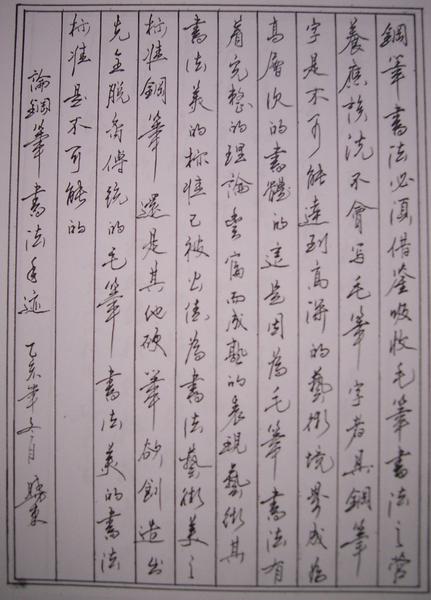 鋼筆書法必須借鉴吸收毛筆書法之营
養應該説不會写毛筆字者其鋼筆
字是不可能達到高深的藝術境界成为
高層次的書體的這是因為毛筆書法有
着完整的理論豐富而成熟的表現藝術其
書法美的标准已被公僡為書法藝術美之
标准鋼筆還是其他硬筆欲創造出
完全脱离傳統的毛筆書法美的書法
标准是不可能的
論鋼筆書法手迹 乙亥年 月